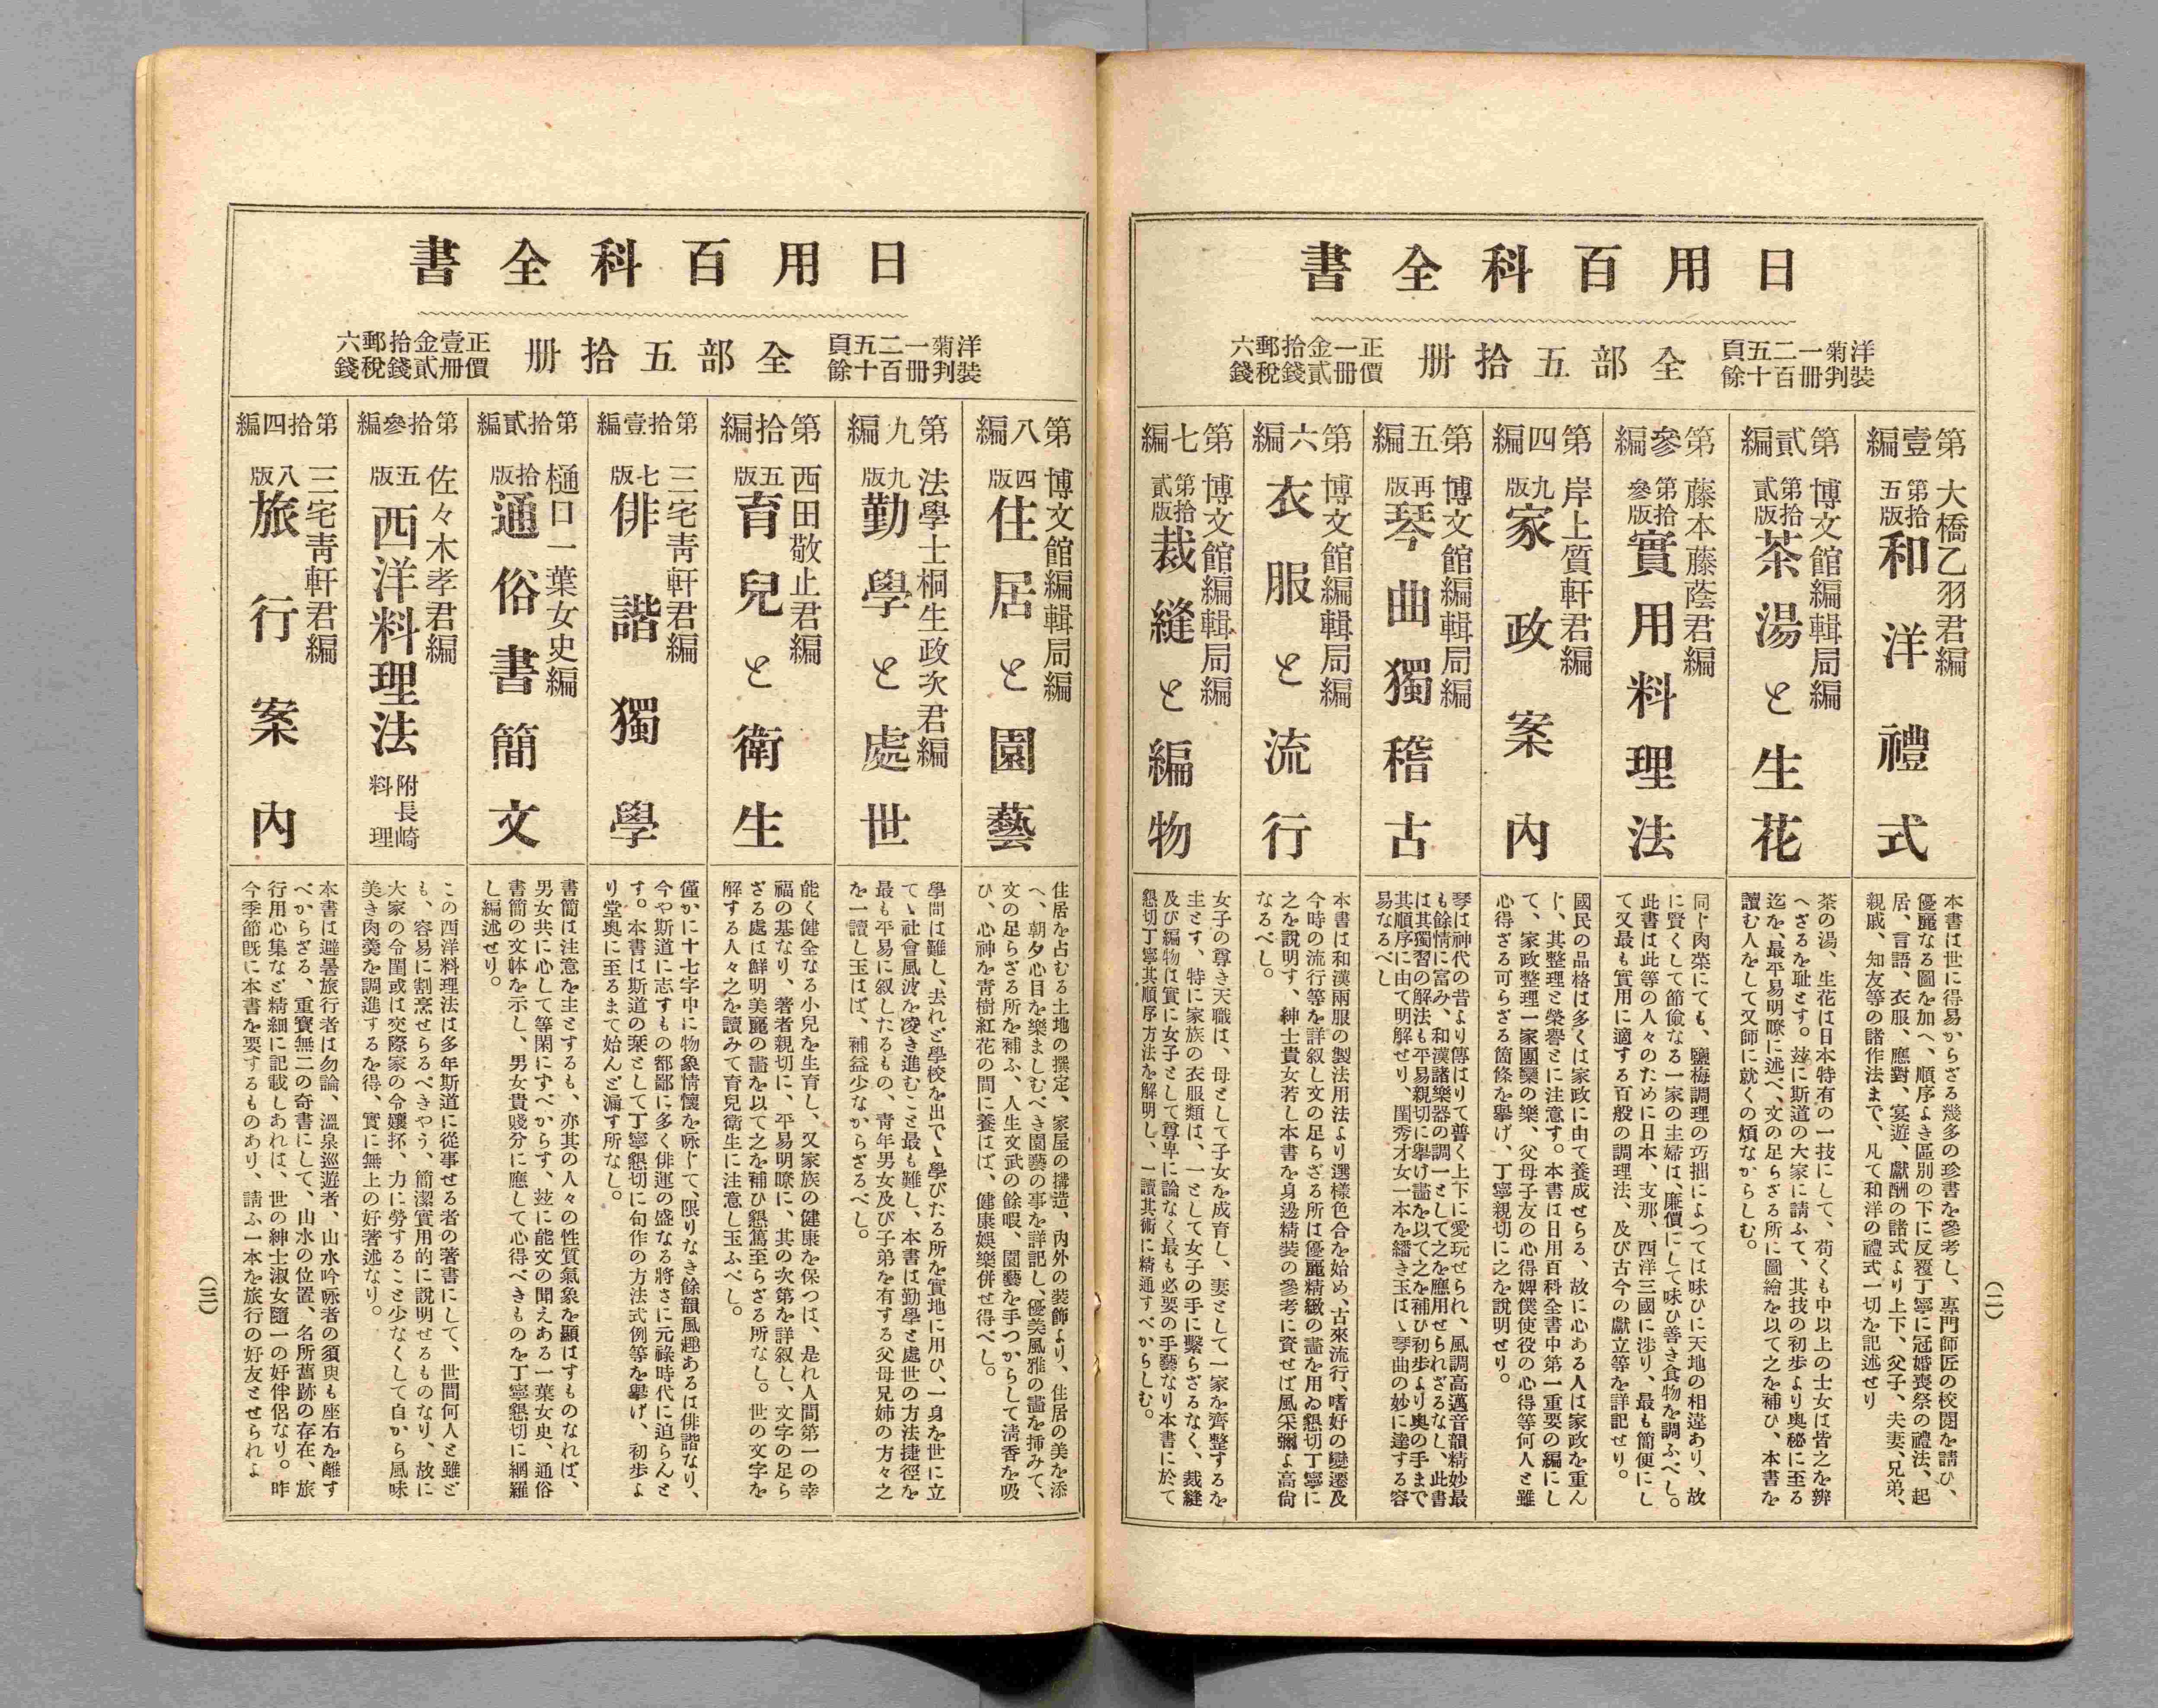 日用百科全書
洋裝
菊判
一冊
二百
五十
頁餘
全部五拾册
正價
一冊
金貳
拾錢
郵稅
六錢
第壹編
大橋乙羽君編
第拾五版
和洋禮式
本書は世に得易からざる幾多の珍書を參考し、專門師匠の校閱を請ひ、
優麗なる圖を加へ、順序よき區別の下に反覆丁寧に冠婚喪祭の禮法、起
居、言語、衣服、應對、宴遊、獻酬の諸式より上下、父子、夫妻、兄弟、
親戚、知友等の諸作法まで、凡て和洋の禮式一切を記述せり
第貳編
博文館編輯局編
第拾貳版
茶湯と生花
茶の湯、生花は日本特有の一技にして、苟くも中以上の士女は皆之を辨
へざるを耻とす。玆に斯道の大家に請ふて、其技の初步より奧秘に至る
迄を、最平易明瞭に述べ、文の足らざる所に圖繪を以て之を補ひ、本書を
讀む人をして又師に就くの煩なからしむ。
第參編
藤本藤蔭君編
第拾參版
實用料理法
同じ肉菜にても、鹽梅調理の巧拙によつては味ひに天地の相違あり、故
に賢くして節儉なる一家の主婦は、廉價にして味ひ善き食物を調ふべし。
此書は此等の人々のために日本、支那、西洋三國に涉り、最も簡便にし
て又最も實用に適する百般の調理法、及び古今の獻立等を詳記せり。
第四編
岸上質軒君編
九版
家政案內
國民の品格は多くは家政に由て養成せらる、故に心ある人は家政を重ん
じ、其整理と榮譽とに注意す。本書は日用百科全書中第一重要の編にし
て、家政整理一家團欒の樂、父母子友の心得婢僕使役の心得等何人と雖
心得ざる可らざる箇條を擧げ、丁寧親切に之を說明せり。
第五編
博文館編輯局編
再版
琴曲獨稽古
琴は神代の昔より傳はりて普く上下に愛玩せられ、風調高邁音韻精妙最
も餘情に富み、和漢諸樂器の調一として之を應用せられざるなし、此書
は其獨習の解法も平易親切に擧け畫を以て之を補ひ初步より奧の手まで
其順序に由て明解せり、閨秀才女一本を繙き玉はゝ琴曲の妙に達する容
易なるべし
第六編
博文館編輯局編
衣服と流行
本書は和漢兩服の製法用法より選樣色合を始め、古來流行、嗜好の變遷及
今時の流行等を詳叙し文の足らざる所は優麗精緻の畫を用ゐ懇切丁寧に
之を說明す、紳士貴女若し本書を身邊精裝の參考に資せば風采彌よ高尙
なるべし。
第七編
博文館編輯局編
第拾貳版
裁縫と編物
女子の尊き天職は、母として子女を成育し、妻として一家を齊整するを
主とす、特に家族の衣服類は、一として女子の手に繫らざるなく、裁縫
及び編物は實に女子として尊卑に論なく最も必要の手藝なり本書に於て
懇切丁寧其順序方法を解明し、一讀其術に精通すべからしむ。
(二)
日用百科全書
洋裝
菊判
一冊
二百
五十
頁餘
全部五拾册
正價
壹冊
金貳
拾錢
郵稅
六錢
第八編
博文館編輯局編
四版
住居と園藝
住居を占むる土地の撰定、家屋の搆造、內外の裝飾より、住居の美を添
へ、朝夕心目を樂ましむべき園藝の事を詳記し、優美風雅の畫を揷みて、
文の足らざる所を補ふ、人生文武の餘暇、園藝を手つからして淸香を吸
ひ、心神を靑樹紅花の間に養はば、健康娛樂併せ得べし。
第九編
法學士桐生政次君編
九版
勤學と處世
學問は難し、去れど學校を出でゝ學びたる所を實地に用ひ、一身を世に立
てゝ社會風波を凌き進むこと最も難し、本書は勤學と處世の方法捷徑を
最も平易に叙したるもの、靑年男女及び子弟を有する父母兄姉の方々之
を一讀し玉はば、補益少なからざるべし。
第拾編
西田敬止君編
五版
育兒と衛生
能く健全なる小兒を生育し、又家族の健康を保つは、是れ人間第一の幸
福の基なり、著者親切に、平易明瞭に、其の次第を詳叙し、文字の足ら
ざる處は鮮明美麗の畫を以て之を補ひ懇篤至らざる所なし。世の文字を
解する人々之を讀みて育兒衛生に注意し玉ふべし。
第拾壹編
三宅靑軒君編
七版
俳諧獨學
僅かに十七字中に物象情懷を咏じて、限りなき餘韻風趣あるは俳諧なり、
今や斯道に志すもの都鄙に多く俳運の盛なる將さに元祿時代に迫らんと
す。本書は斯道の栞として丁寧懇切に句作の方法式例等を擧げ、初步よ
り堂奧に至るまて始んど漏す所なし。
第拾貳編
樋口一葉女史編
拾版
通俗書簡文
書簡は注意を主とするも、亦其の人々の性質氣象を顯はすものなれば、
男女共に心して等閑にすべからす、玆に能文の聞えある一葉女史、通俗
書簡の文躰を示し、男女貴賤分に應して心得べきものを丁寧懇切に網羅
し編述せり。
第拾參編
佐々木孝君編
五版
西洋料理法
附長崎料理
この西洋料理法は多年斯道に從事せる者の著書にして、世間何人と雖ど
も、容易に割烹せらるべきやう、簡潔實用的に說明せるものなり、故に
大家の令閨或は交際家の令孃抔、力に勞すること少なくして自から風味
美き肉羹を調進するを得、實に無上の好著述なり。
第拾四編
三宅靑軒君編
八版
旅行案內
本書は避暑旅行者は勿論、溫泉巡遊者、山水吟咏者の須臾も座右を離す
べからざる、重寶無二の奇書にして、山水の位置、名所舊跡の存在、旅
行用心集など精細に記載しあれば、世の紳士淑女隨一の好伴侶なり。昨
今季節旣に本書を要するものあり、請ふ一本を旅行の好友とせられよ
(三)